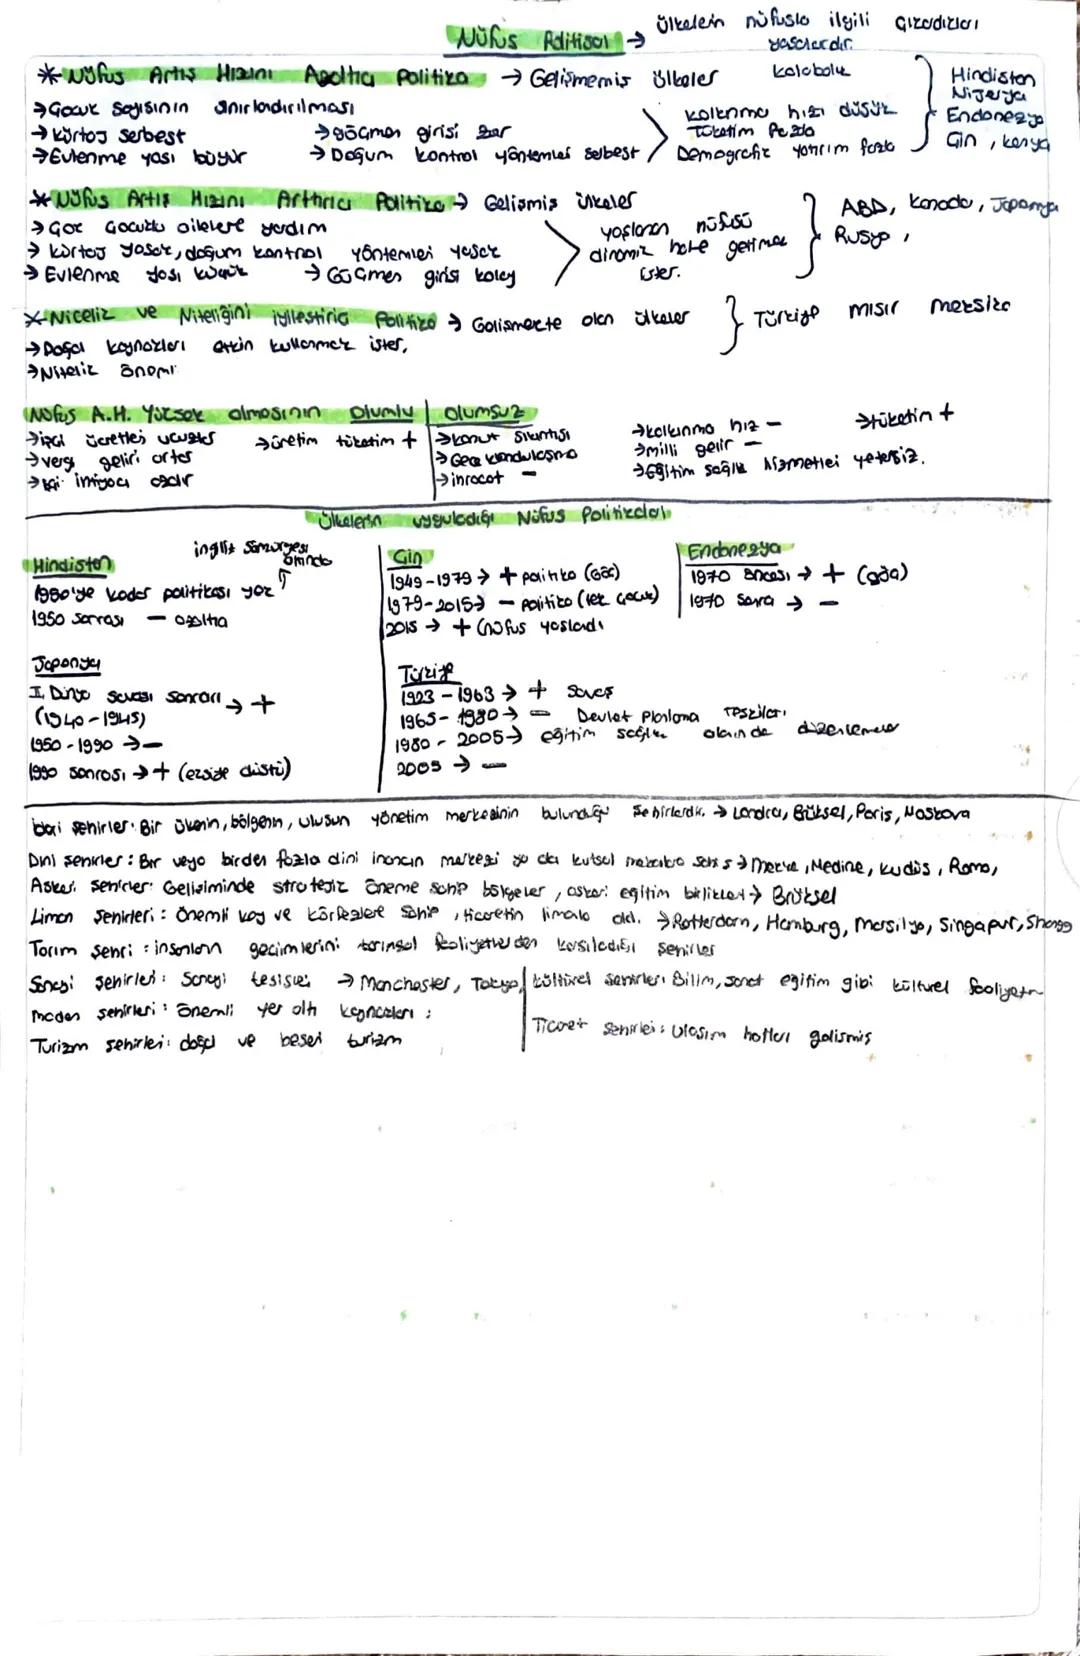 Nüfus Politikası → Ülkelerin nüfusla ilgili çıkardıkları yasalardır.
* Nüfus Artış Hızını Azaltıcı Politika → Gelişmemiş ülkeler kalabalık
→ Çocuk sayısının sınırlandırılması
→ Kürtaj serbest → göçmen girişi zor
→ Evlenme yaşı büyük → Doğum kontrol yöntemleri serbest
kalkınma hızı düşük
Tüketim fazla
Demografik yatırım fazla
Hindistan
Nijerya
Endonezya
Çin, Kenya
* Nüfus Artış Hızını Arttırıcı Politika → Gelişmiş ülkeler
→ Çok çocuklu ailelere yardım
→ kürtaj yasak, doğum kontrol yöntemleri yasak
→ Evlenme yaşı küçük → Göçmen girişi kolay
yaşlanan nüfusu
dinamik hale getirmek
ister.
ABD, Kanada, Japonya
Rusya,
* Nicelik ve Niteliğini iyileştirici Politika → Gelişmekte olan ülkeler } Türkiye mısır meksika
→ Doğal kaynakları etkin kullanmak ister,
→ Nitelik önemli
Nüfus A.H. Yüksek olmasının Olumlu
→ işçi ücretleri ucuzlar → üretim tüketim +
→ vergi geliri artar
→ işçi ihtiyacı azalır
Olumsuz
→ konut sıkıntısı
→ Gecekondulaşma
→ ihracat −
→ kalkınma hız −
→ milli gelir −
→ Eğitim sağlık hizmetleri yetersiz.
→ tüketim +
Ülkelerin uyguladığı Nüfus Politikaları
Hindistan
ingiliz sömürgesi altında
1950'ye kadar politikası yok
1950 sonrası − azaltma
Çin
1949-1979 → + politika (Göç)
1979-2015 → − politika (tek çocuk)
2015 → + (nüfus yaşlandı
Endonezya
1970 öncesi → + (gıda)
1970 sonra → −
Japonya
II. Dünya savaşı sonrası → +
(1940-1945)
1950-1990 → −
1990 sonrası → + (eksiye düştü)
Türkiye
1923-1963 → + savaş
1965-1980 → − Devlet Planlama Teşkilatı
1980-2005 → eğitim sağlık alanında düzenlemeler
2005 → −
İdari şehirler: Bir ülkenin, bölgenin, ulusun yönetim merkezinin bulunduğu şehirlerdir. → Londra, Brüksel, Paris, Moskova
Dini şehirler: Bir veya birden fazla dini inancın merkezi ya da kutsal → Mekke, Medine, Kudüs, Roma,
Askeri şehirler: Gelişiminde stratejik öneme sahip bölgeler, askeri eğitim birlikleri → Brüksel
Liman şehirleri: önemli koy ve körfezlere sahip, ticaretin → Rotterdam, Hamburg, Marsilya, Singapur, Shang
Tarım şehri: insanların geçimlerini tarımsal faaliyetlerden karşıladığı şehirler
Sanayi şehirleri: Sanayi tesisleri → Manchester, Tokyo,
maden şehirleri: önemli yer altı kaynakları;
Turizm şehirleri: doğal ve beşeri turizm
kültürel şehirler: Bilim, sanat eğitim gibi kültürel faaliyetin
Ticaret şehirleri: Ulaşım hatları gelişmiş